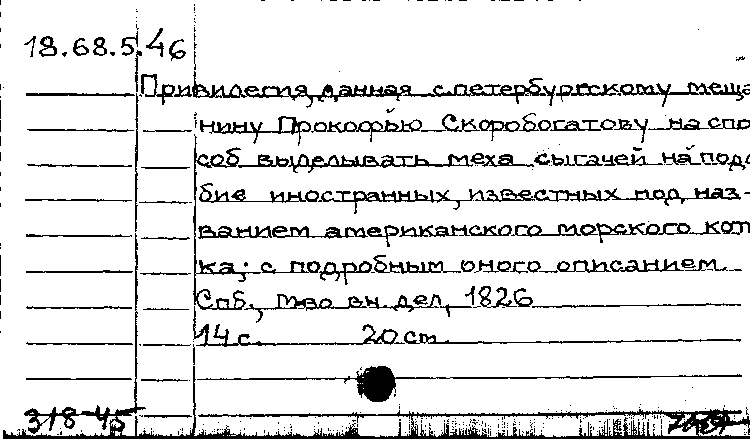 18.68.5.46
Привилегия, данная с.петербургскому меща
нину Прокофью Скоробогатову на спо
соб выделывать меха сыгачей на подо
бие иностранных, известных под наз-
ванием американского морского кот
ка; с подробным оного описанием.
Спб., м-во вн. дел, 1826
14 с. 20 см
318-45